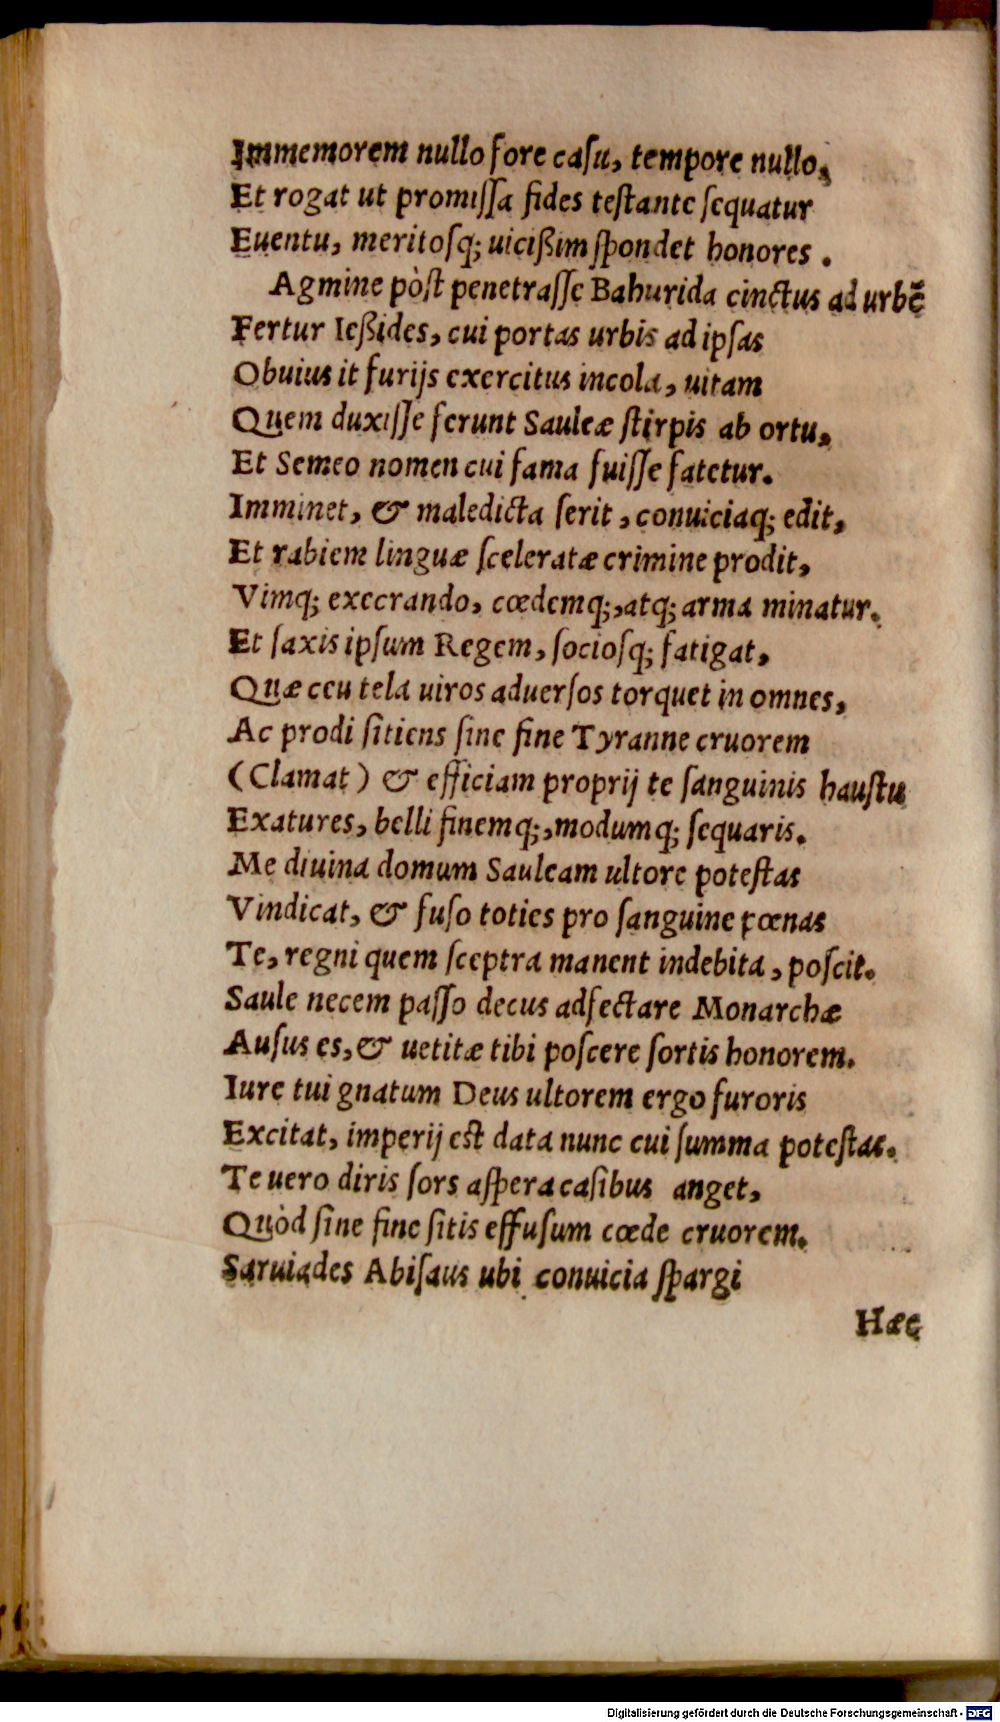 Immemorem nullo fore caſu, tempore nullo,
Et rogat ut promiſſa fides teſtante ſequatur
Euentu, meritoſq; uicißim ſpondet honores .
Agmine pòſt penetraſſe Bahurida cinctus ad urbẽ
Fertur Ießides, cui portas urbis ad ipſas
Obuius it furijs exercitus incola, uitam
Quem duxiſſe ferunt Sauleæ ſtirpis ab ortu,
Et Semeo nomen cui fama fuiſſe fatetur.
Imminet, & maledicta ſerit , conuiciaq; edit,
Et rabiem linguæ ſceleratæ crimine prodit,
Vimq; execrando, cœdemq;, atq; arma minatur.
Et ſaxis ipſum Regem, ſocioſq; fatigat,
Quæ ceu tela uiros aduerſos torquet in omnes,
Ac prodi ſitiens ſine fine Tyranne cruorem
(Clamat) & efficiam proprij te ſanguinis hauſtu
Exatures, belli finemq;, modumq; ſequaris.
Me diuina domum Sauleam ultore poteſtas
Vindicat, & fuſo toties pro ſanguine pœnas
Te, regni quem ſceptra manent indebita , poſcit.
Saule necem paſſo decus adfectare Monarchæ
Auſus es, & uetitæ tibi poſcere ſortis honorem.
Iure tui gnatum Deus ultorem ergo furoris
Excitat, imperij eſt data nunc cui ſumma poteſtas.
Te uero diris ſors aſpera caſibus anget,
Quòd ſine fine ſitis effuſum cœde cruorem.
Saruiades Abiſaus ubi conuicia ſpargi
Hæc
Digitalisierung gefördert durch die Deutsche Forschungsgemeinschaft - DFG